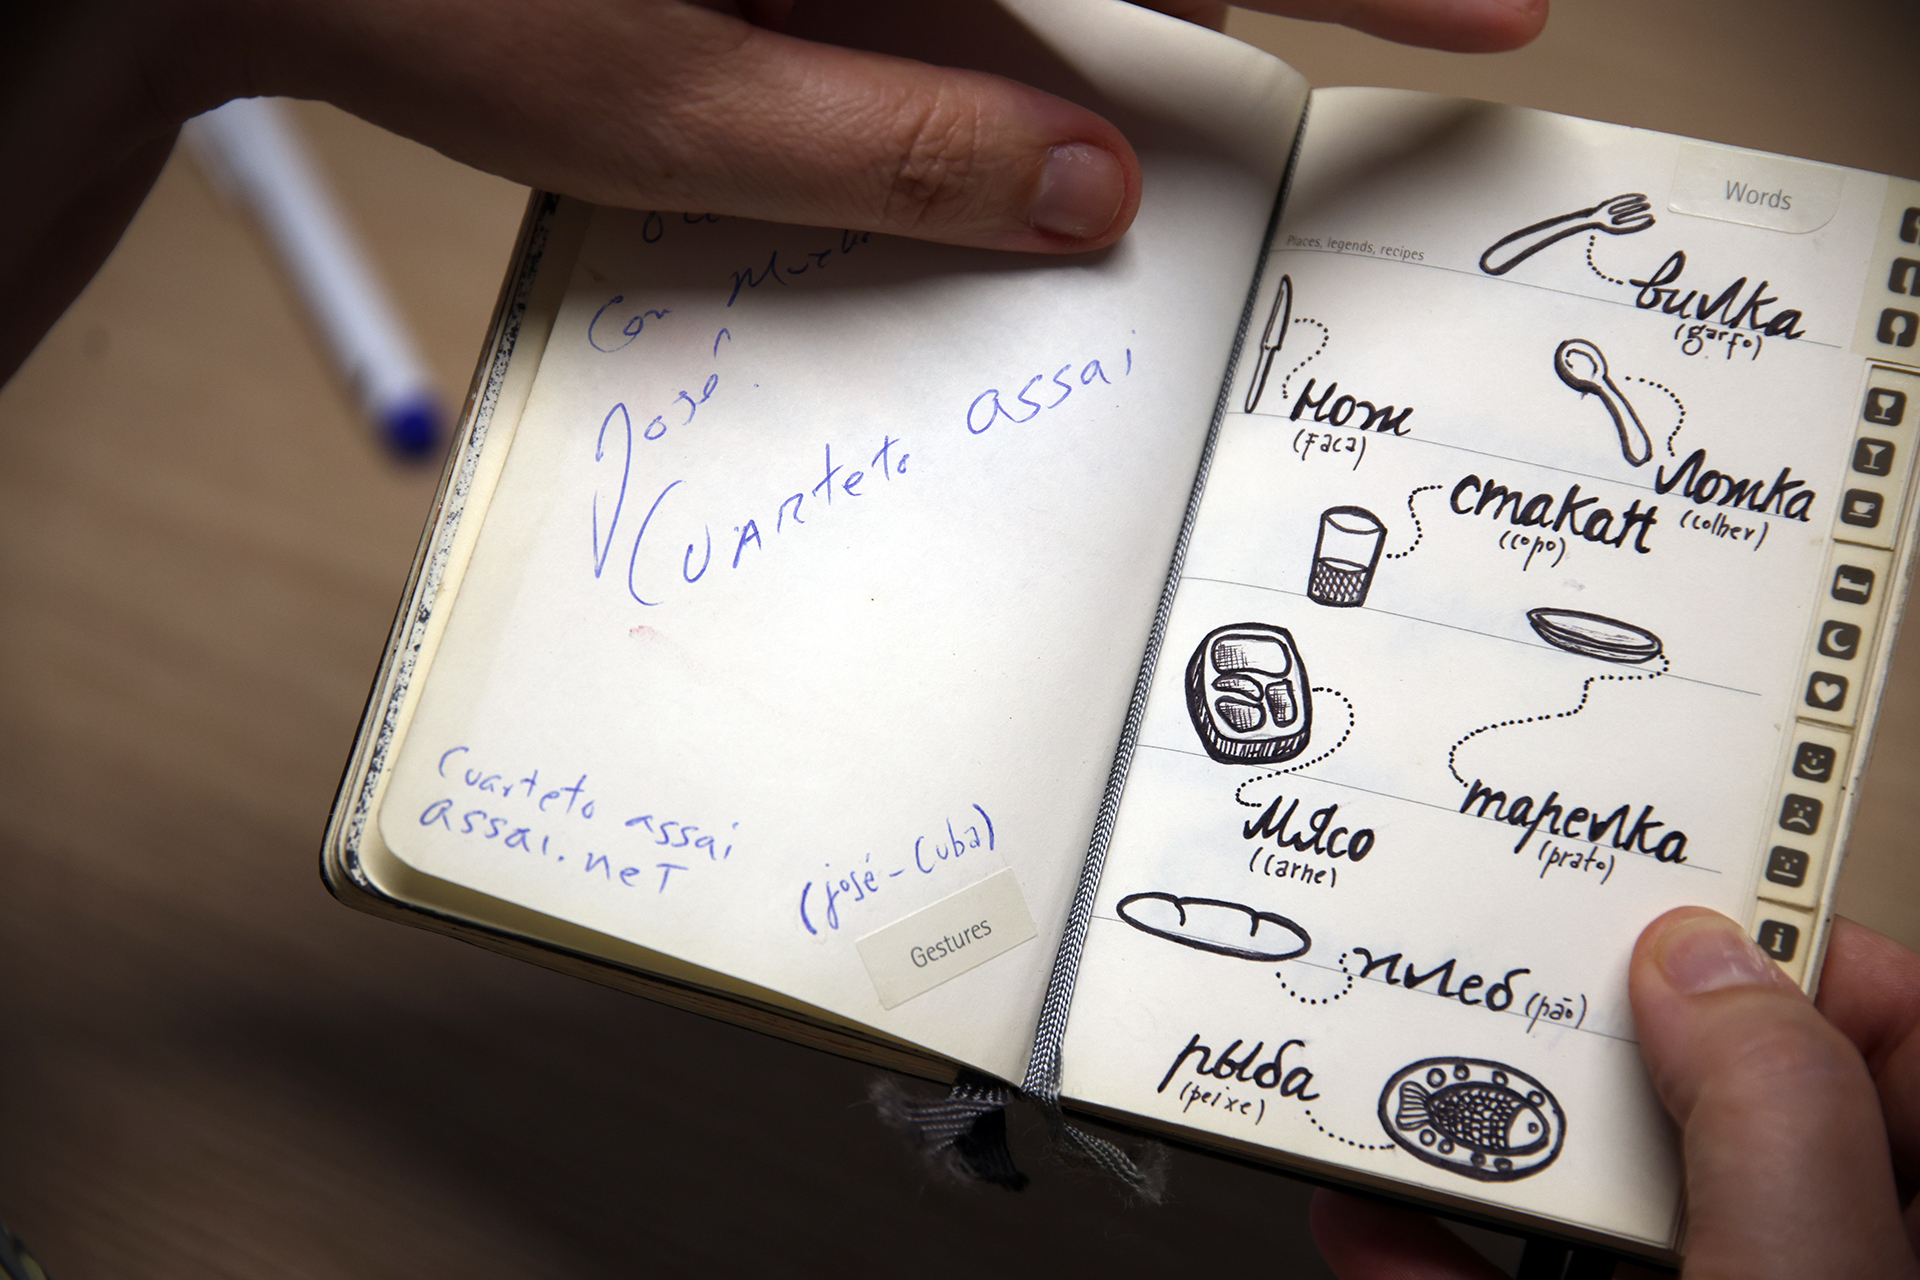 Con
José
Cuarteto assai
Cuarteto assai
assai.net
(josé - Cuba)
Gestures
Words
Places, legends, recipes
вилка
(garfo)
нож
(faca)
ложка
(colher)
стакан
(copo)
мясо
(carne)
тарелка
(prato)
хлеб (pão)
рыба
(peixe)